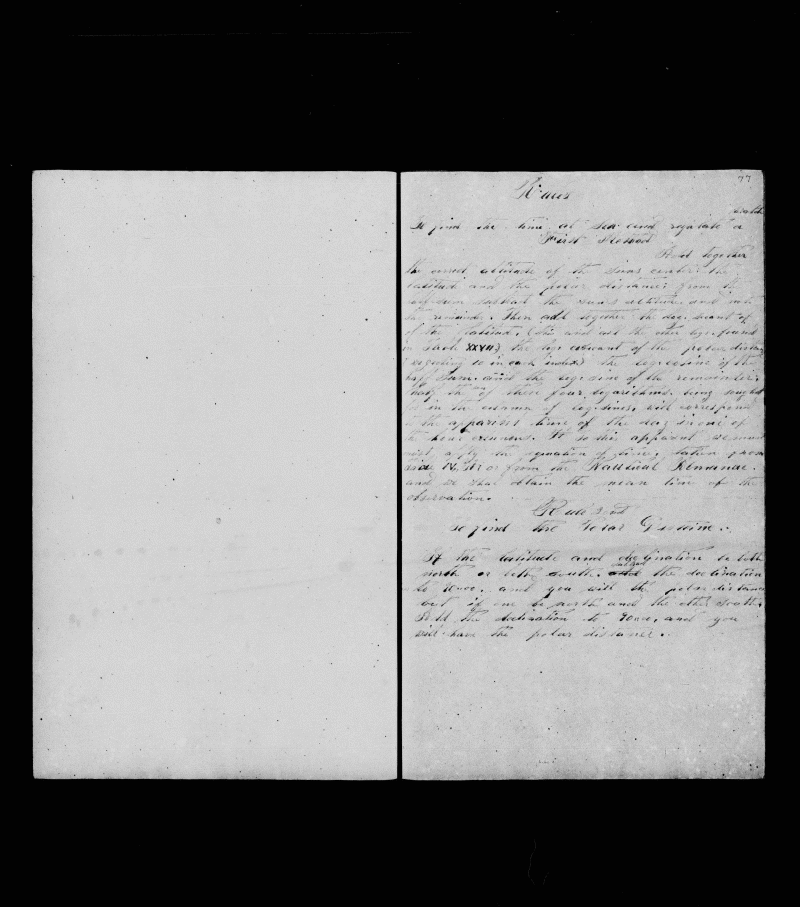 77
Rules
watch
To find the time at sea and regulate a
First Method
Add together
the correct altitude of the suns center the
latitude and the polar distance; from the
half sum subtract the suns altitude and note
the remainder. Then add together the sec
of the latitude, and the other logs found
in Table XXVII) the log. cosecant of the polar distance
rejecting 10 in each index) the log cosine of the
half sum. and the log. sine of the remainder.
half the of these four logarithms being sought
for in the column of log. sines, will correspond
to the apparent time of the day in one of
the hour columns. To this apparent we must
apply the equation of time, taken from
or from the Nautical Almanac.
and we shall obtain the mean time of the
observation.
Rule
to find the Polar Distance.
If the latitude and declination be both
subtract
north or both south. the declination
to 90.00. and you will the polar distance
but if one be north and the other South,
Add the declination to 90.00, and you
will have the polar distance.